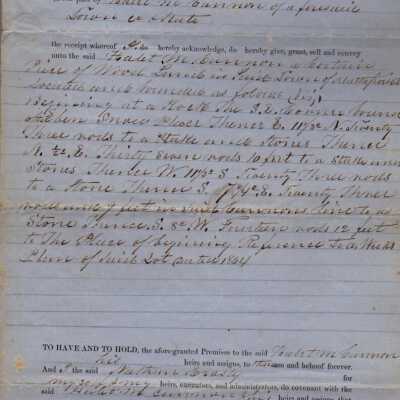 M. Cannon of aforesaid
Town & State
the receipt whereof I do hereby acknowledge, do hereby give, grant, sell and convey
unto the said M. Cannon a certain
Piece of Wood Land in Said Town of Mattapoisett
Located and bounded as follows viz;
Beginning at a Rock the S.E. Corner bound
of Eben Snows Place Thence E. N. Twenty
Three rods to a Stake and Stones Thence
N. E. Thirty Seven rods 10 feet to a Stake and
Stones Thence W. S. Twenty Three rods
to a Stone Thence S. E. Twenty Three
rods and 9 feet in said Cannons line to a
Stone Thence S. 8º W. Fourteen rods 12 feet
to The Place of beginning Reference to
Plan of Said Lot dated 1864
TO HAVE AND TO HOLD, the afore-granted Premises to the said M Cannon
his heirs and assigns, to use and behoof forever.
And I the said Nathan for
myself & my heirs, executors, and administrators, do covenant with the
said M Cannon heirs and assigns, that